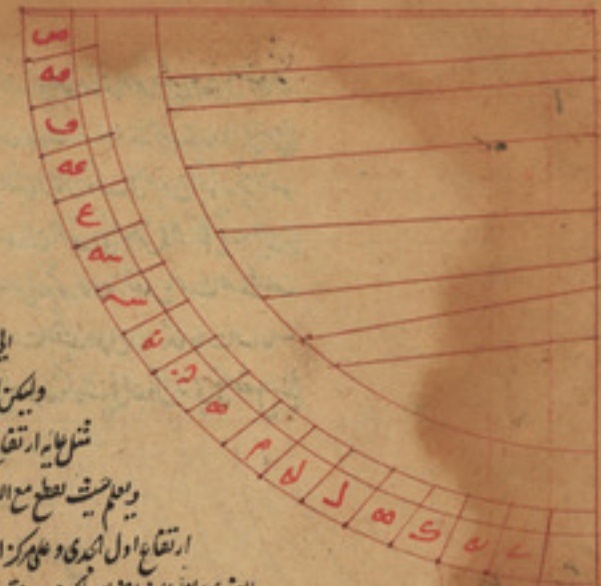 ص
فه
ف
عه
ع
سه
س
نه
ن
مه
م
له
ل
كه
ك
يه
ي
وليكن
مثل غايه ارتفا
ويعلم حيث يقطع مع ال
ارتفاع اول الجدى وعلى مركز ا